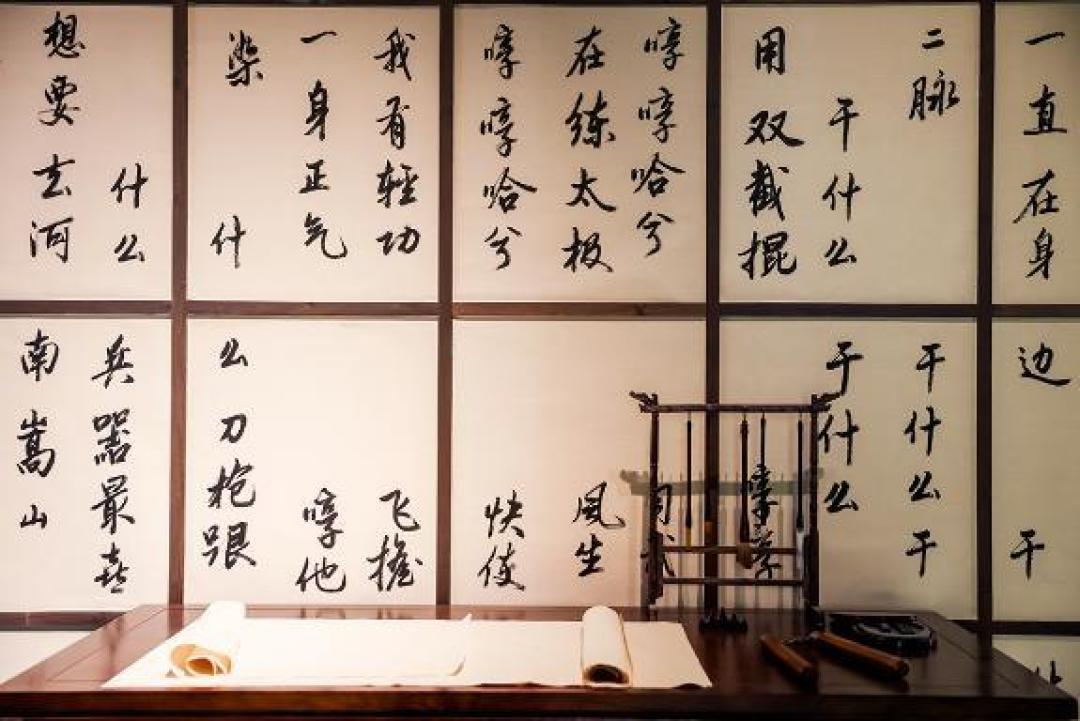 一直在身边 干
二脉 干什么干
干什么 于什么
用双截掍
哼哼哈兮
在练太极 風生
哼哼哈兮 快使
我有輕功 飞檐
一身正气 哼他
柒 什么刀枪跟
什么兵器最喜
想要去河南嵩山